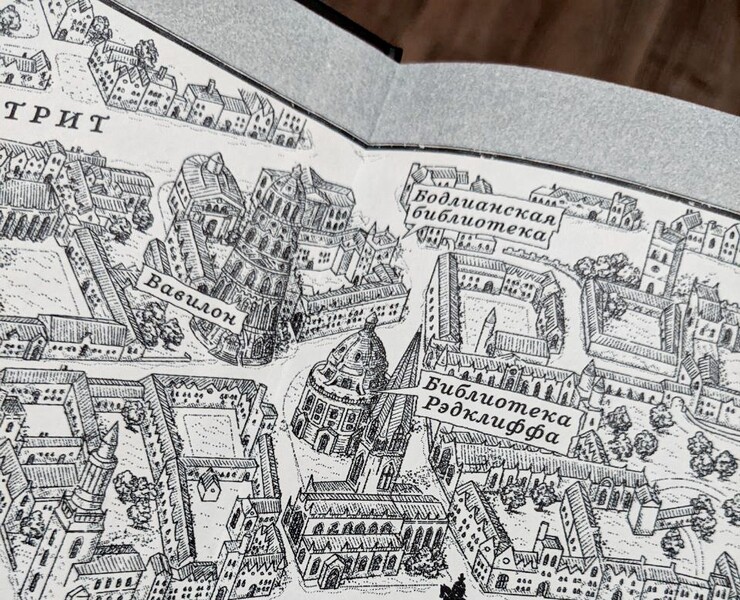 ТРИТ
Бодлианская
библиотека
Вавилон
Библиотека
Рэдклиффа